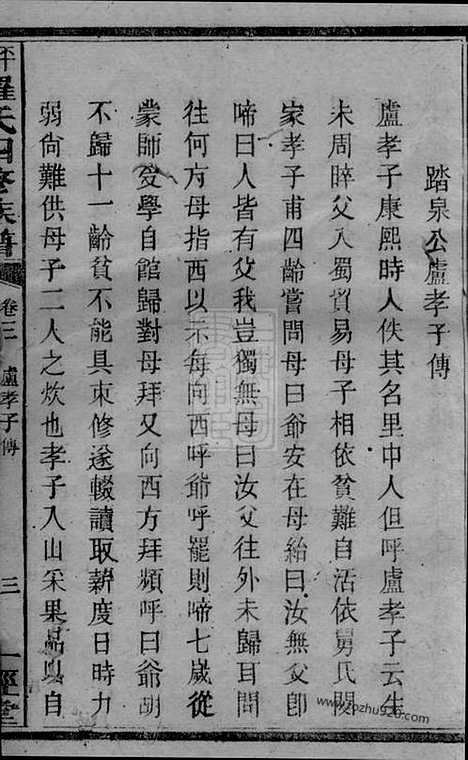 踏泉公盧孝子傳
盧孝子康熙時人佚其名里中人但呼盧孝子云生
未周晬父入蜀貿易母子相依貧難自活依舅氏閱
家孝子甫四齡嘗問母曰爺安在母紿曰汝無父卽
啼曰人皆有父我豈獨無母曰汝父往外未歸耳問
往何方母指西以示每向西呼爺呼罷則啼七歲從
蒙師受學自館歸對母拜又向西方拜頻呼曰爺胡
不歸十一齡貧不能具束修遂輟讀取薪度日時力
弱尙難供母子二人之炊也孝子入山采果品以自
平羅氏四修族譜
卷三
盧孝子傳
三
一經堂
www.zpzhu920.com